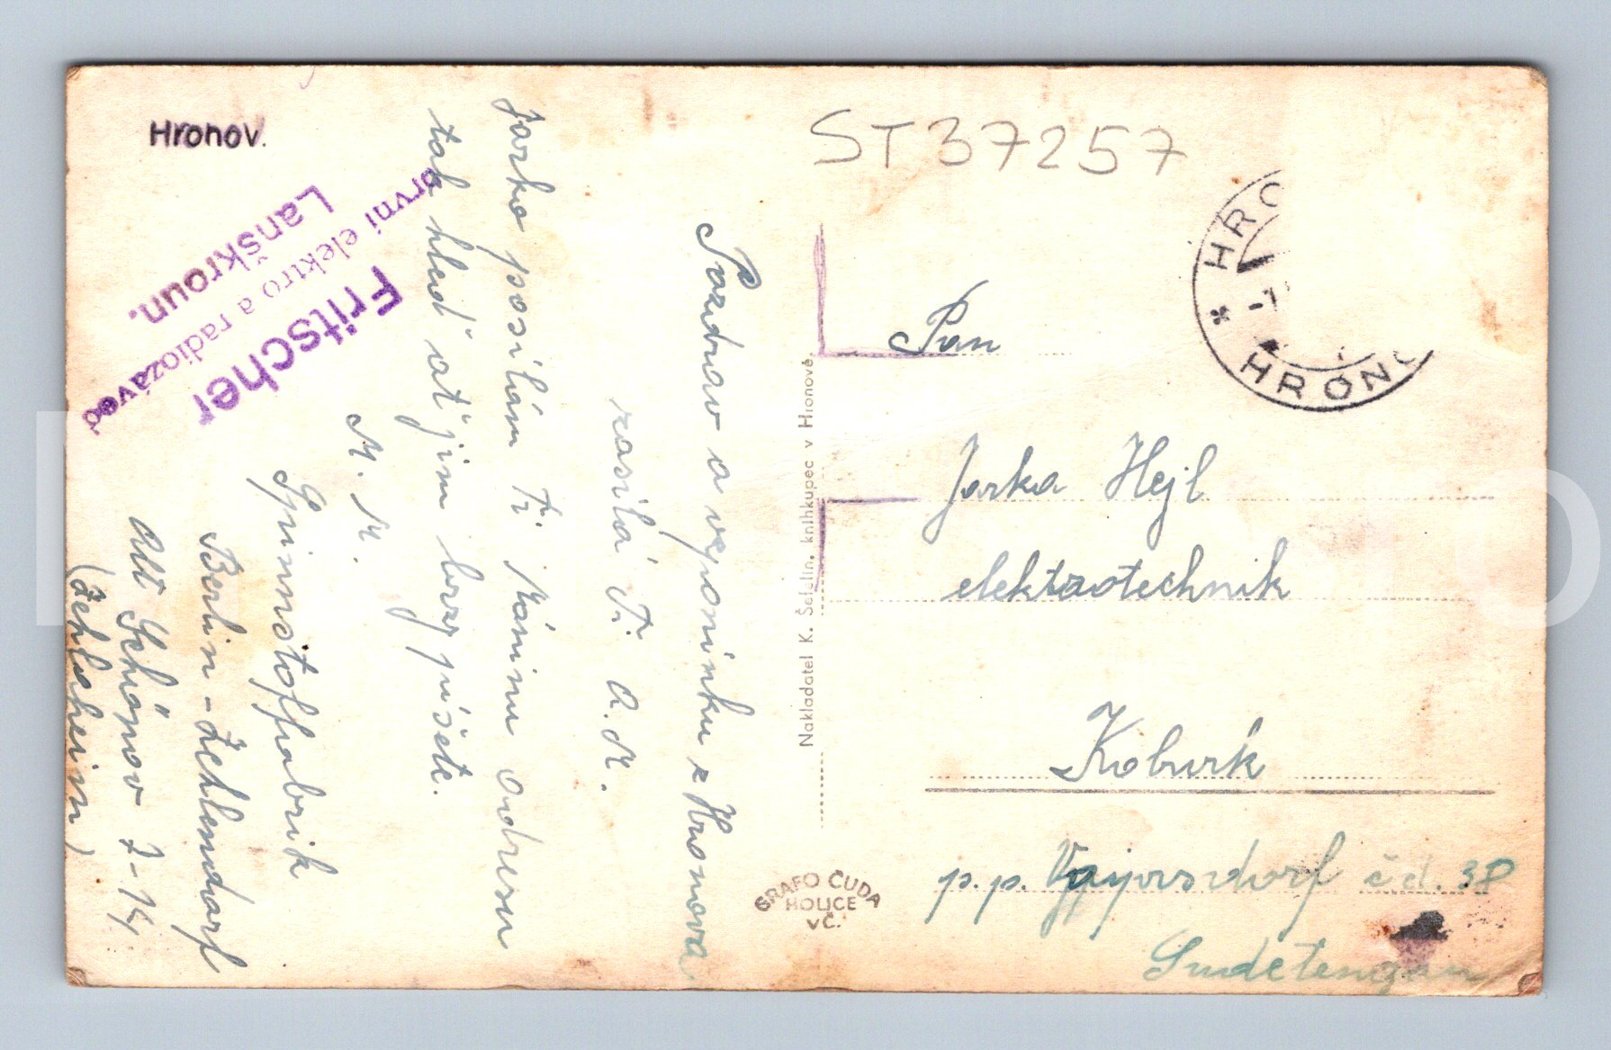 Hronov.
ST 37257
HRONOV
HRONOV
-7
Fritscher
první elektro a radiozávod
Lanškroun.
Pozdrav a vzpomínku z Hronova
zasílá Ti A. M.
Jarko posílám Ti Máninu adresu
tak hleď ať jim brzy píšete.
M. M.
Spinnstoffabrik
Berlin - Zehlendorf
Alt Schönow 7-14
Nakladatel K. Šefelín, knihkupec v Hronově.
GRAFO ČUDA
HOLICE
V Č.
Pan
Jarka Hejl
elektrotechnik
Koburk
p. p. čd. 38
Sudetengau